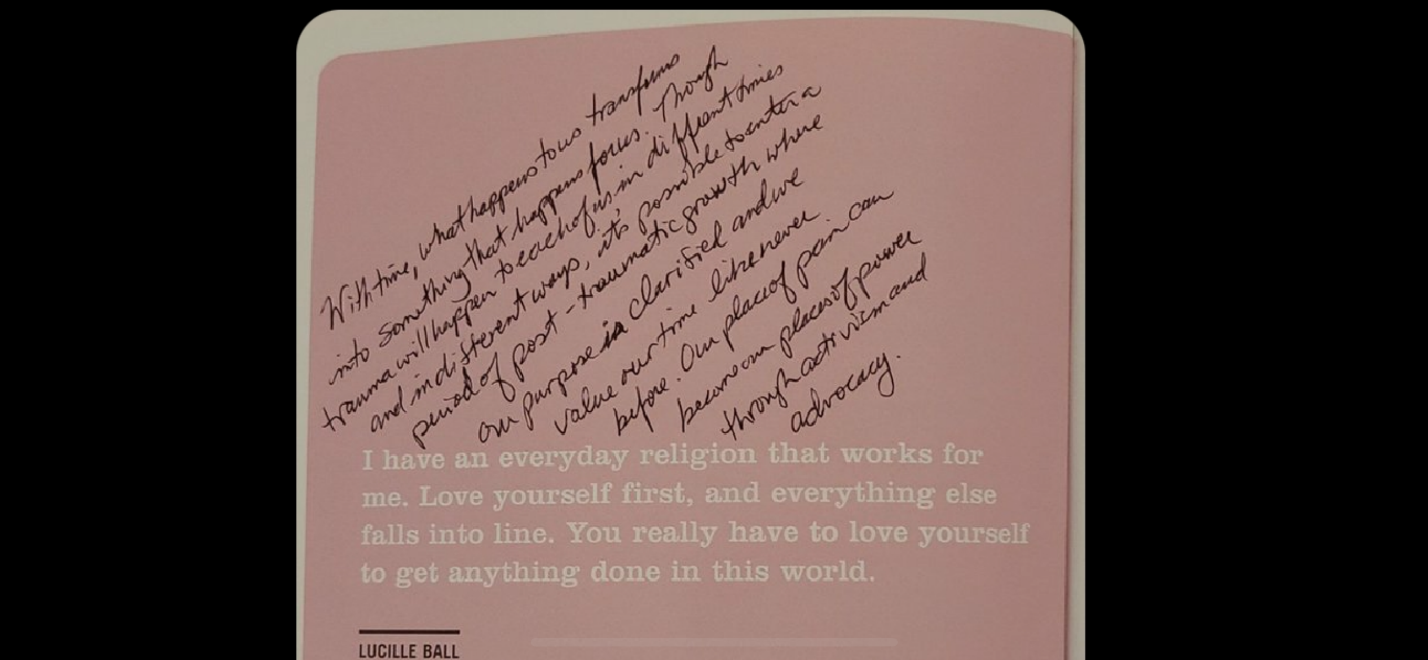 With time, what happens to us transforms
into something that happens for us. Though
trauma will happen to each of us, in different times
and in different ways, it's possible to enter a
period of post-traumatic growth where
our purpose is clarified and we
value our time like never
before. Our place of pain can
become our places of power
through activism and
advocacy.
I have an everyday religion that works for
me. Love yourself first, and everything else
falls into line. You really have to love yourself
to get anything done in this world.
LUCILLE BALL